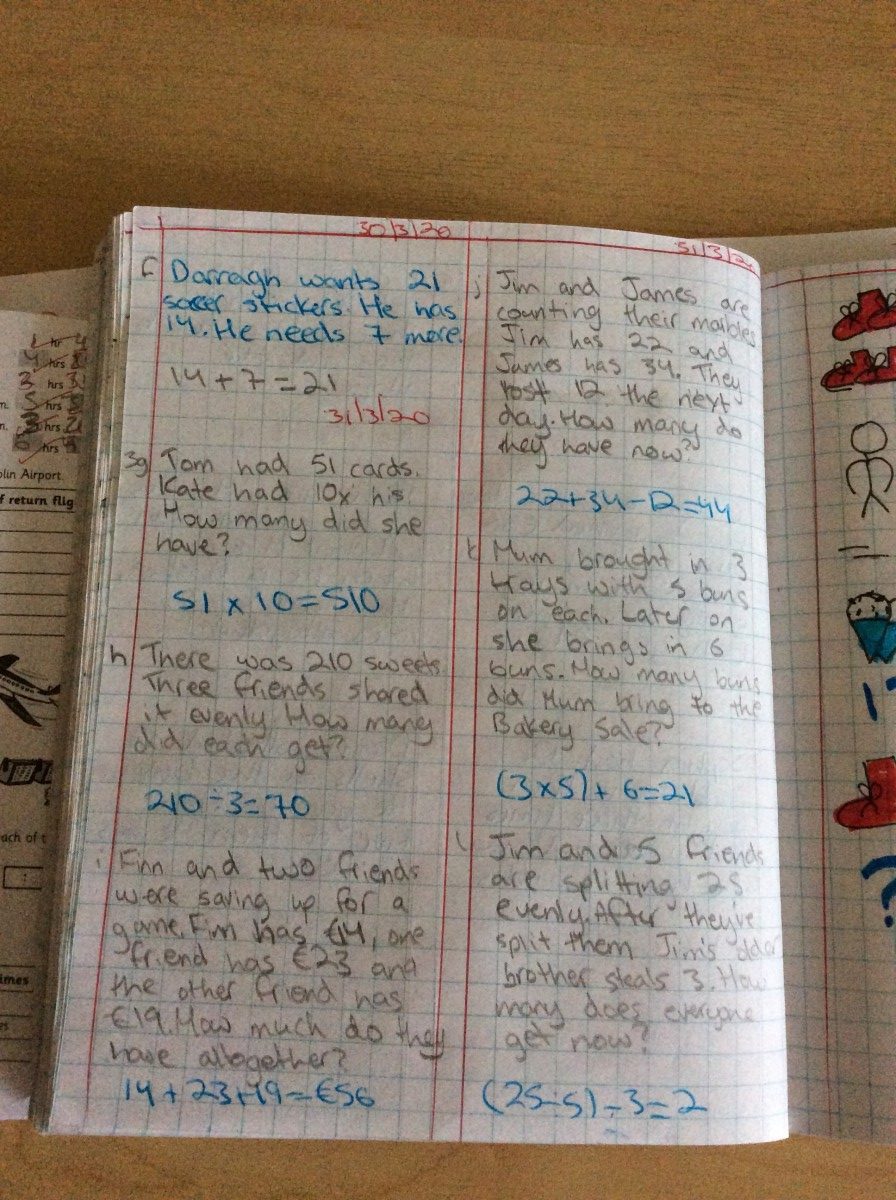 30/3/20
f Darragh wants 21
soccer stickers. He has
14. He needs 7 more.
14 + 7 = 21
31/3/20
3g Tom had 51 cards.
Kate had 10x his.
How many did she
have?
51 x 10 = 510
h There was 210 sweets
Three friends shared
it evenly How many
did each get?
210 ÷ 3 = 70
i Finn and two friends
were saving up for a
game. Finn has €14, one
friend has €23 and
the other friend has
€19. How much do they
have altogether?
14 + 23 + 19 = €56
j Jim and James are
counting their marbles
Jim has 22 and
James has 34. They
lost 12 the next
day. How many do
they have now?
22 + 34 - 12 = 44
k Mum brought in 3
trays with 5 buns
on each. Later on
she brings in 6
buns. How many buns
did Mum bring to the
Bakery Sale?
(3 x 5) + 6 = 21
l Jim and 5 friends
are splitting 25
evenly. After they've
split them Jim's older
brother steals 3. How
many does everyone
get now?
(25 ÷ 5) - 3 = 2
hr
hrs
hrs
hrs
hrs
hrs
lin Airport
f return flig
ach of t
imes